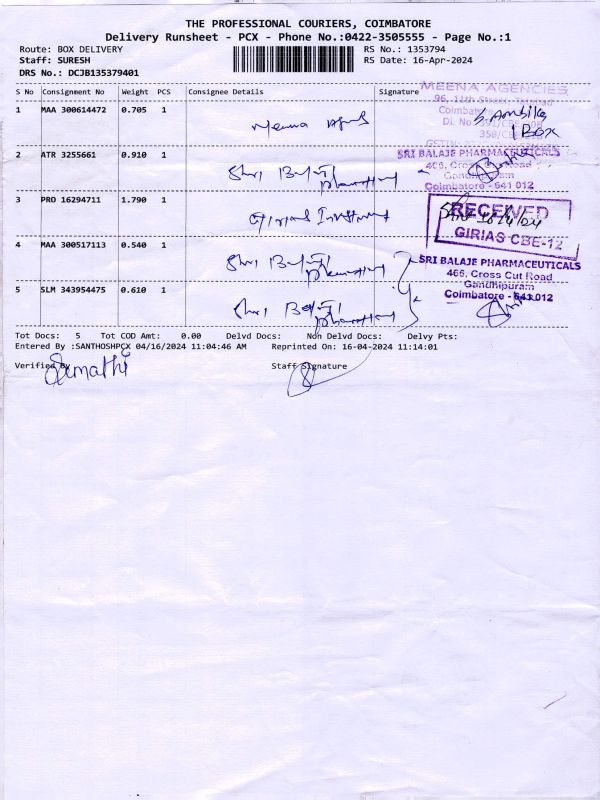 THE PROFESSIONAL COURIERS, COIMBATORE
Delivery Runsheet - PCX - Phone No.:0422-3505555 - Page No.:1
Route: BOX DELIVERY RS No.: 1353794
Staff: SURESH RS Date: 16-Apr-2024
DRS No.: DCJB135379401
S No Consignment No Weight PCS Consignee Details Signature
MEENA AGENCIES
1 MAA 300614472 0.705 1 Meena
1 Box
2 ATR 3255661 0.910 1 SRI BALAJE PHARMACEUTICALS
Shri
Coimbatore - 641 012
3 PRO 16294711 1.790 1 RECEIVED
16/4/24
GIRIAS CBE-12
4 MAA 300517113 0.540 1 Shri
SRI BALAJE PHARMACEUTICALS
466, Cross Cut Road
Gandhipuram
5 SLM 343954475 0.610 1 Coimbatore - 641 012
Shri
Tot Docs: 5 Tot COD Amt: 0.00 Delvd Docs: Non Delvd Docs: Delvy Pts:
Entered By :SANTHOSHPCX 04/16/2024 11:04:46 AM Reprinted On: 16-04-2024 11:14:01
Verified By Staff Signature
Sumathi